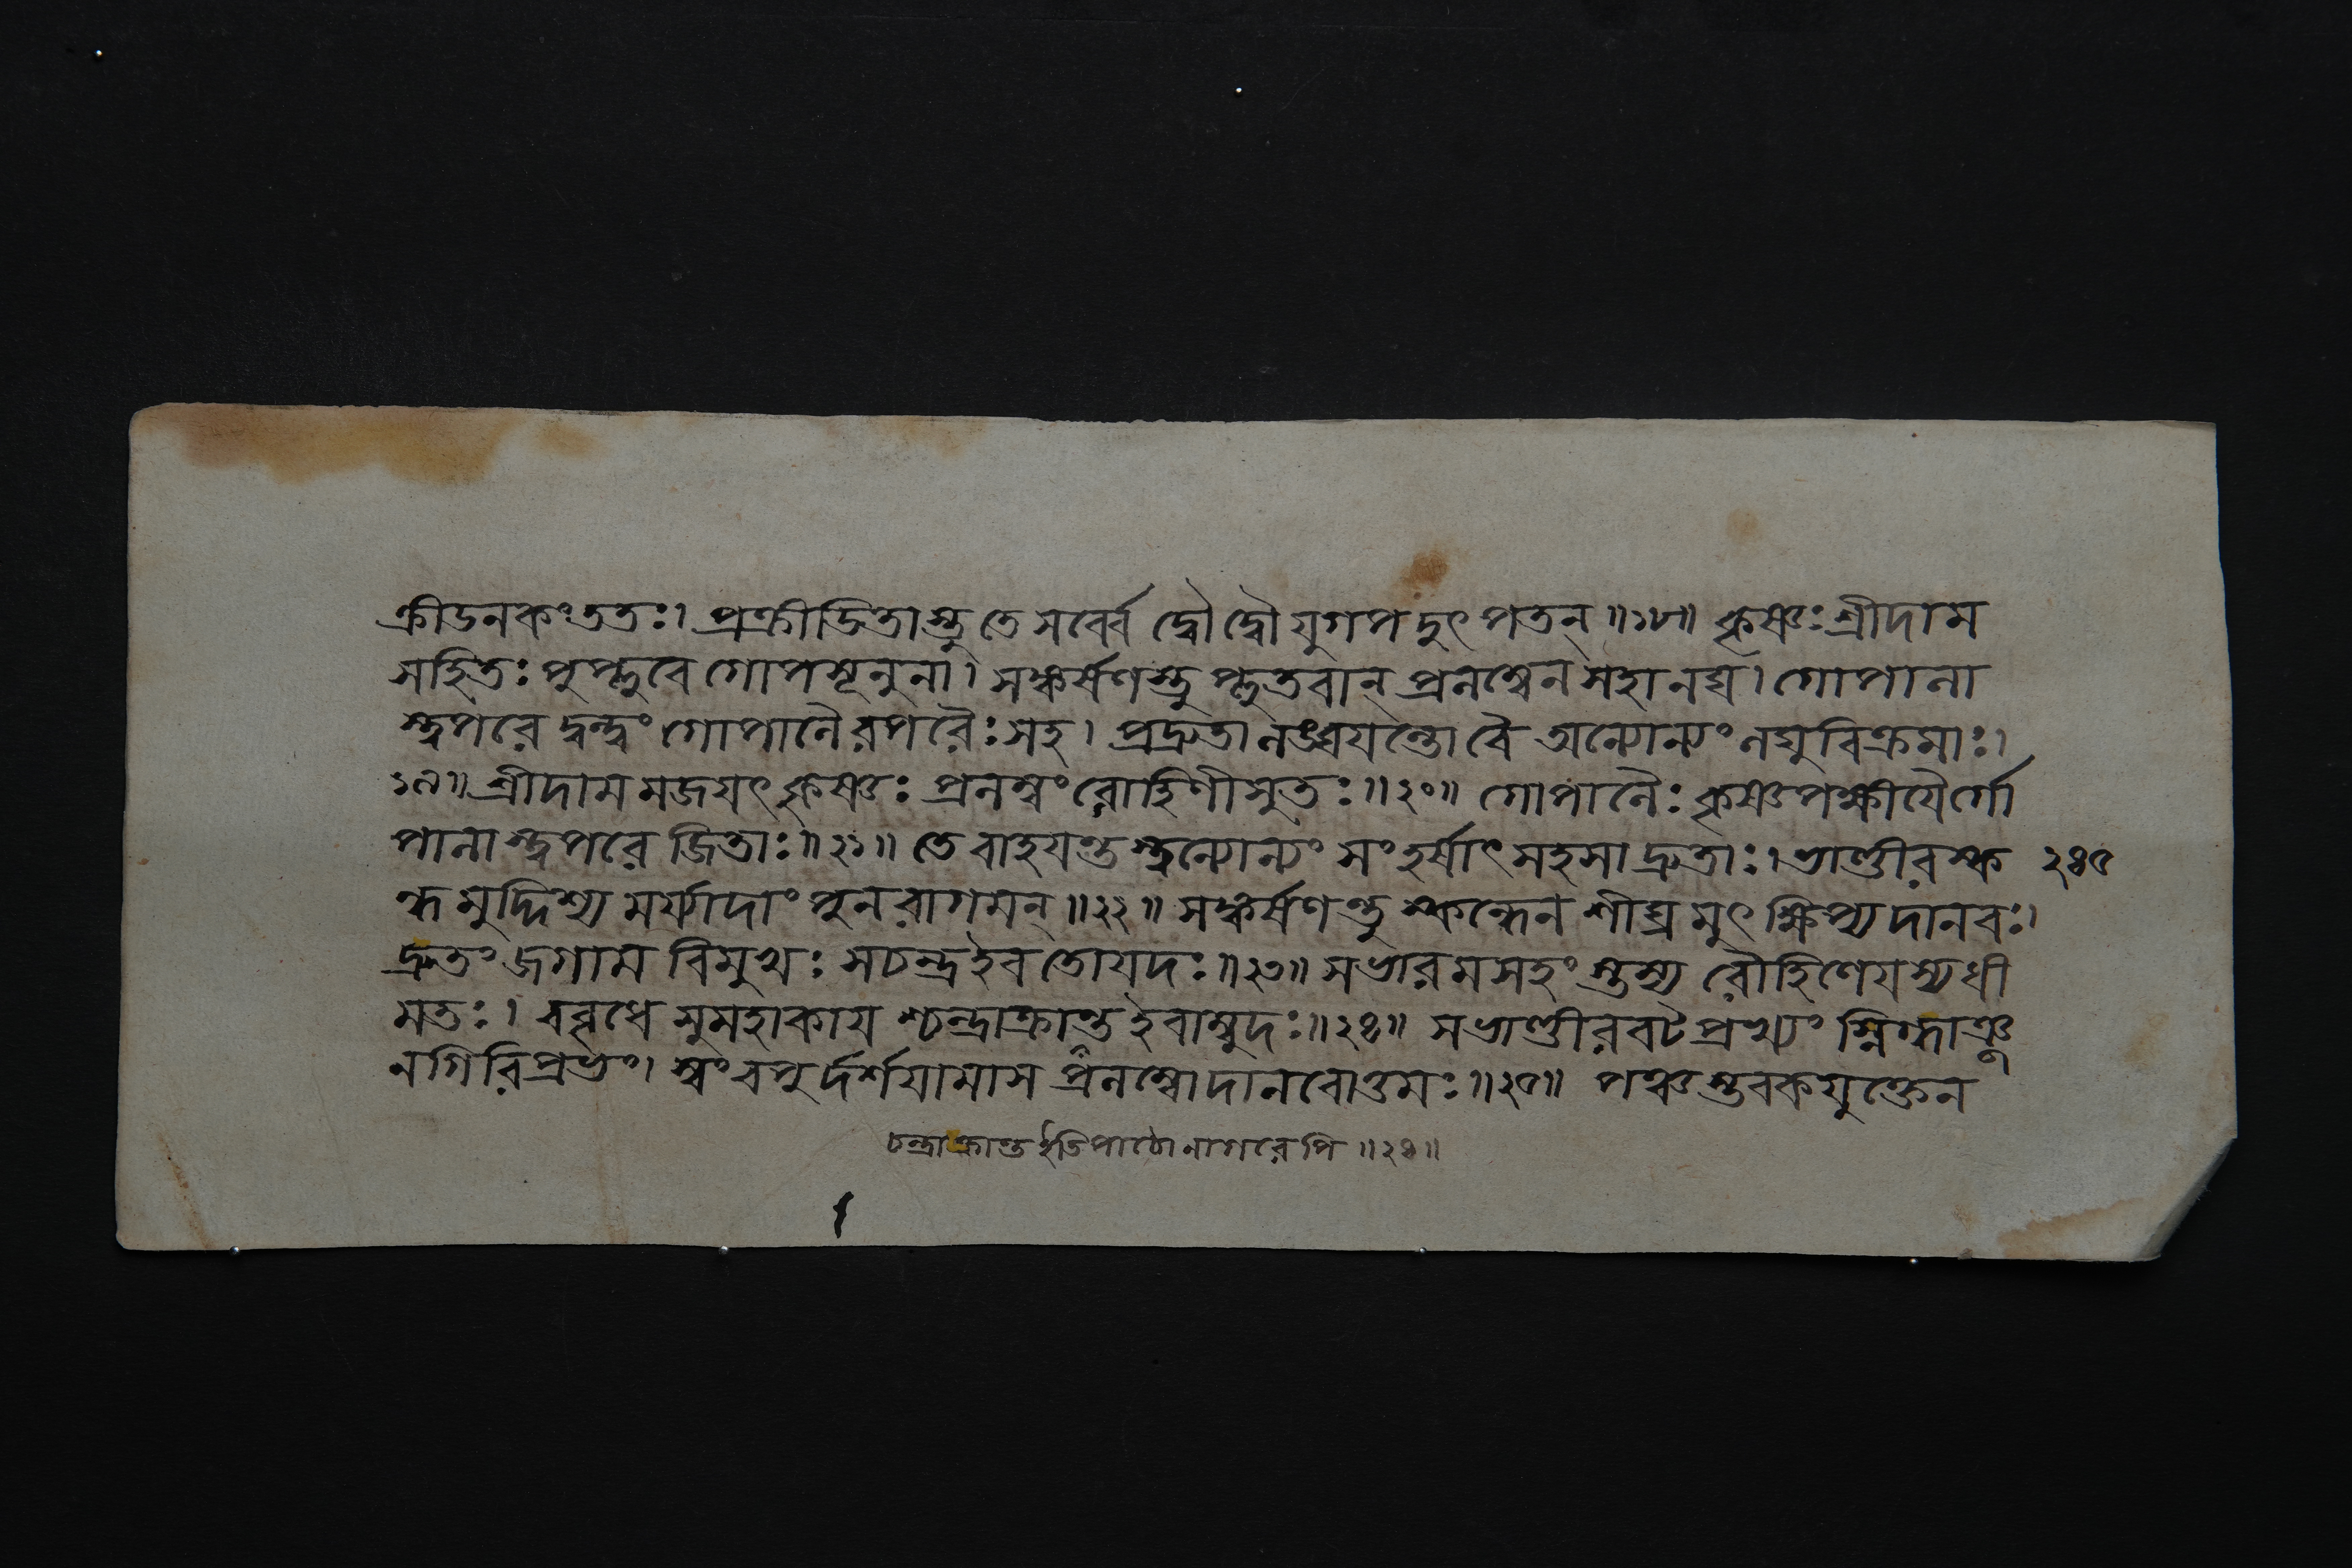 ক্রীডনকং ততঃ। প্রক্রীডিতাস্তু তে সর্ব্বে দ্বৌ দ্বৌ যুগপদুৎপতন্ ॥১৮॥ কৃষ্ণঃ শ্রীদাম
সহিতঃ পুপ্লুবে গোপসূনুনা। সঙ্কর্ষণস্তু প্লুতবান্ প্রলম্বেন সহানঘ। গোপালা
স্ত্বপরে দ্বন্দ্বং গোপালৈরপরৈঃ সহ। প্রদ্রুতা লঙ্ঘযন্তো বৈ অন্যোন্যং লঘুবিক্রমাঃ।
১৯॥ শ্রীদামমজযৎ কৃষ্ণঃ প্রলম্বং রোহিণীসুতঃ ॥২০॥ গোপালৈঃ কৃষ্ণপক্ষীযৈর্গো
পালাস্ত্বপরে জিতাঃ ॥২১॥ তে বাহযন্তস্ত্বন্যোন্যং সংহর্ষাৎ সহসা দ্রুতাঃ। ভাণ্ডীরস্ক ২৪৫
ন্ধমুদ্দিশ্য মর্য্যাদাং পুনরাগমন্ ॥২২॥ সঙ্কর্ষণন্তু স্কন্ধেন শীঘ্রমুৎক্ষিপ্য দানবঃ।
দ্রুতং জগাম বিমুখঃ সচন্দ্র ইব তোযদঃ ॥২৩॥ স ভারমসহংস্তস্য রৌহিণেযস্য ধী
মতঃ। ববৃধে সুমহাকায শ্চন্দ্রাক্রান্ত ইবাম্বুদঃ ॥২৪॥ স ভাণ্ডীরবটপ্রখ্যং স্নিগ্ধাঞ্জ
নগিরিপ্রভং। স্বং বপুর্দর্শযামাস প্রলম্বো দানবোত্তমঃ ॥২৫॥ পঞ্চস্তবকযুক্তেন
চন্দ্রাক্রান্ত ইতি পাঠো নাগরেপি ॥২৪॥